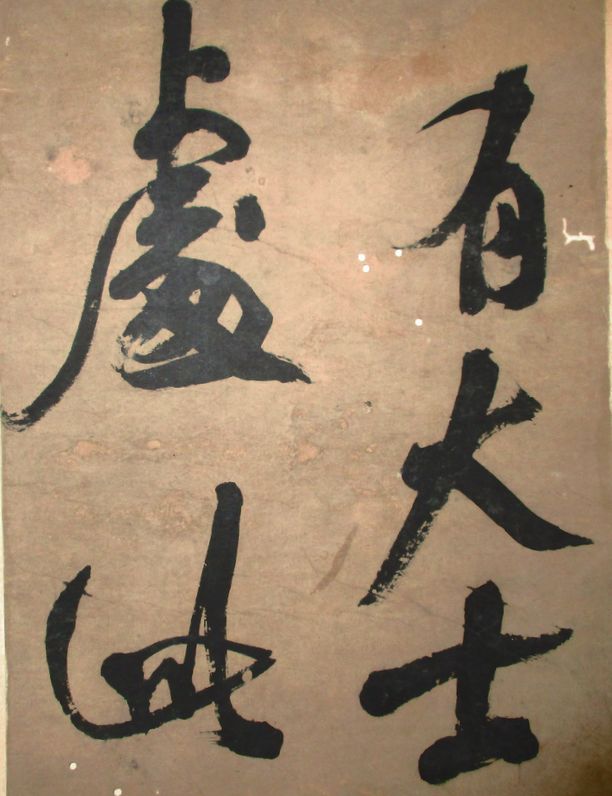 有大士
處